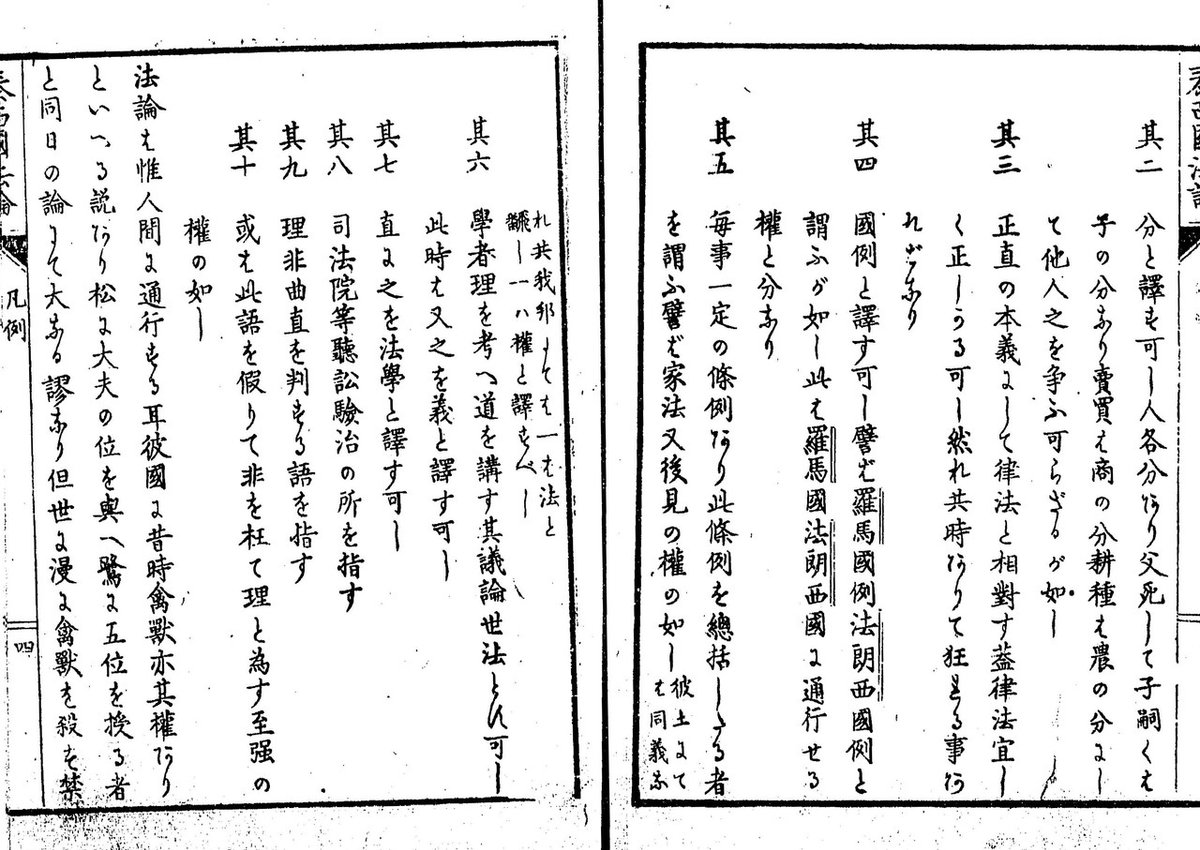 泰西國法論
其二 分と譯す可し人各分あり父死して子嗣くは
子の分なり賣買は商の分耕種は農の分にし
て他人之を爭ふ可らざるが如し
其三 正直の本義にして律法と相對す蓋律法宜し
く正しかる可し然れ共時ありて狂へる事あ
ればなり
其四 國例と譯す可し譬ば羅馬國例法朗西國例と
謂ふが如し此は羅馬國法朗西國に通行せる
權と分なり
其五 每事一定の條例あり此條例を總括したる者
を謂ふ譬ば家法又後見の權の如し彼土にて
は同義な
れ共我邦にては一は法と
飜し一ハ權と譯すべし
其六 學者理を考へ道を講す其議論世法とす可し
此時は又之を義と譯す可し
其七 直に之を法學と譯す可し
其八 司法院等聽訟驗治の所を指す
其九 理非曲直を判する語を指す
其十 或は此語を假りて非を枉て理と為す至强の
權の如し
法論は惟人間に通行する耳彼國に昔時禽獸亦其權あり
といへる説あり松に大夫の位を與へ鷺に五位を授る者
と同日の論にて大なる謬なり但世に漫に禽獸を殺を禁
泰西國法論
凡例
四